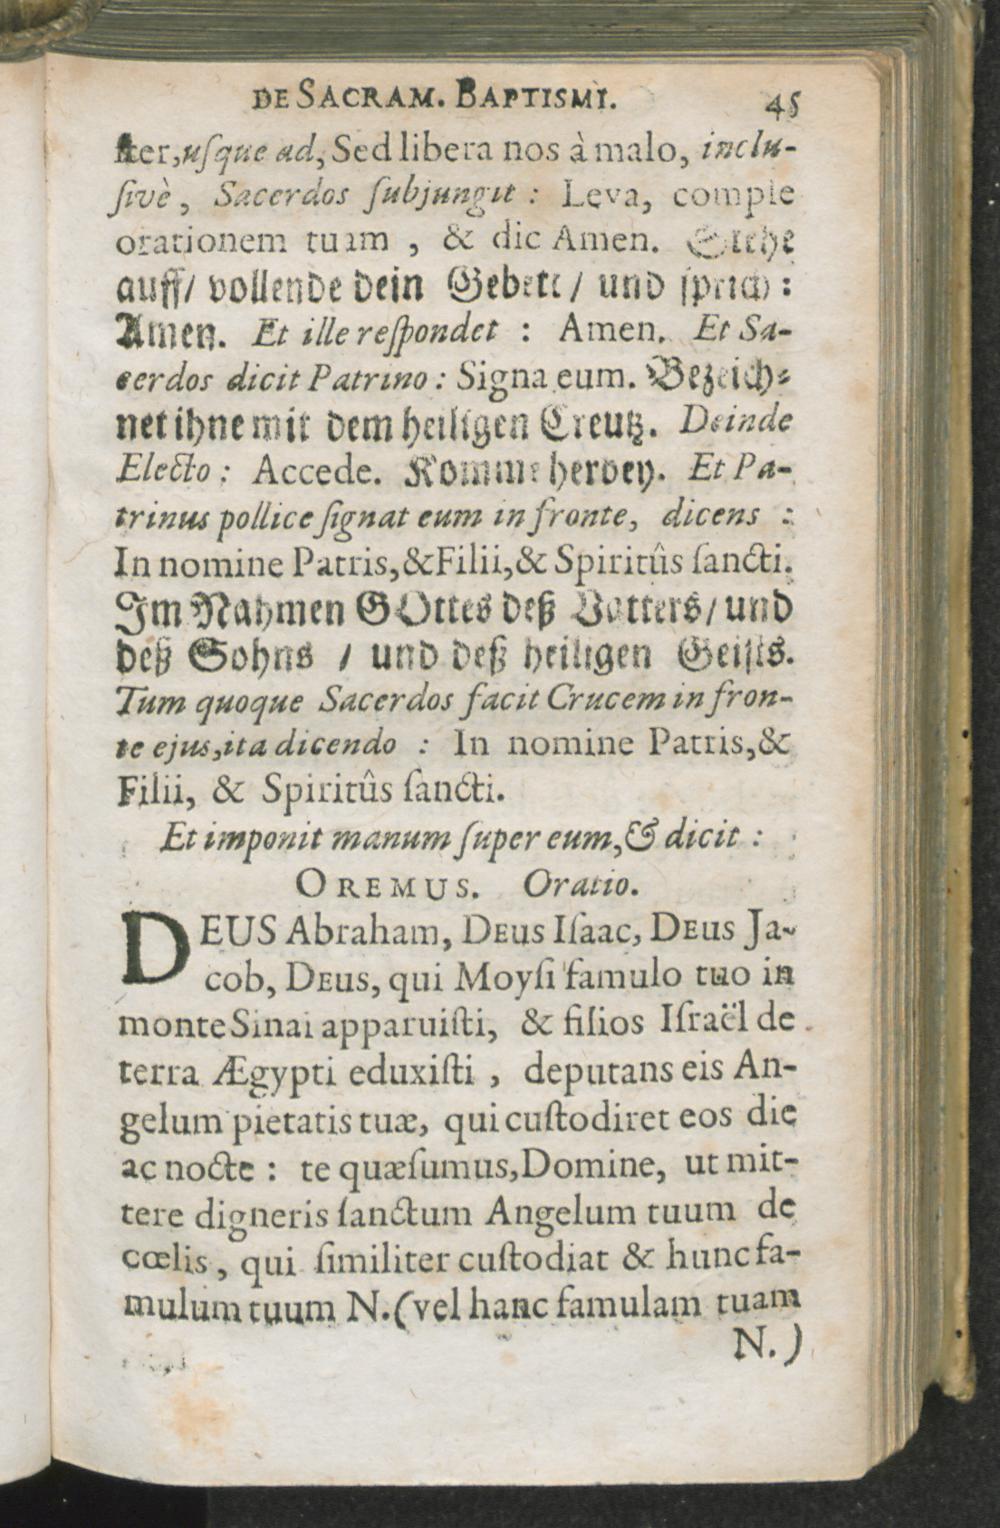 DE SACRAM. BAPTISMI. 45
ſter, uſque ad, Sed libera nos à malo, inclu-
ſivè, Sacerdos ſubjungit : Leva, comple
orationem tuam , & dic Amen. Stehe
auff/ vollende dein Gebett / und ſprich :
Amen. Et ille reſpondet : Amen. Et Sa-
cerdos dicit Patrino : Signa eum. Bezeich-
net ihne mit dem heiligen Creutz. Deinde
Electo : Accede. Komme herbey. Et Pa-
trinus pollice ſignat eum in fronte, dicens :
In nomine Patris, & Filii, & Spiritûs ſancti.
Im Nahmen GOttes deß Vatters / und
deß Sohns / und deß heiligen Geiſts.
Tum quoque Sacerdos facit Crucem in fron-
te ejus, ita dicendo : In nomine Patris, &
Filii, & Spiritûs ſancti.
Et imponit manum ſuper eum, & dicit :
OREMUS. Oratio.
DEUS Abraham, DEus Iſaac, DEus Ja-
cob, DEus, qui Moyſi famulo tuo in
monte Sinai apparuiſti, & filios Iſraël de
terra Ægypti eduxiſti , deputans eis An-
gelum pietatis tuæ, qui cuſtodiret eos die
ac nocte : te quæſumus, Domine, ut mit-
tere digneris ſanctum Angelum tuum de
cœlis , qui ſimiliter cuſtodiat & hunc fa-
mulum tuum N. (vel hanc famulam tuam
N. )